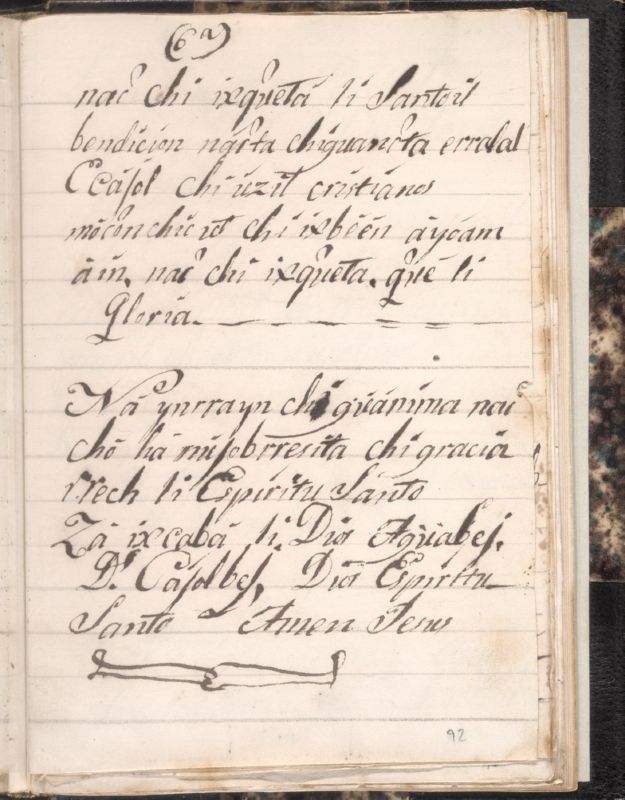 (6a)
nac̃ chi ixq̃ueta li Santoil
bendicion nac̃ta chiguanc̃ta erralal
Ccaſol chi uzil cristianos
mõcõnchic ut chi ixbëën ayoam
ain, nac̃ chi ixq̃ueta. q̃uë li
Gloria.
Nä ynrrayn chi guänima nac̃
chõ hä misobrresita chi gracia
rrech li Espiritu Santo
Zä ixcabä li Dios Aguabeſ.
Ds Caſolbeſ, Dios Espiritu
Santo Amen Jesus
92